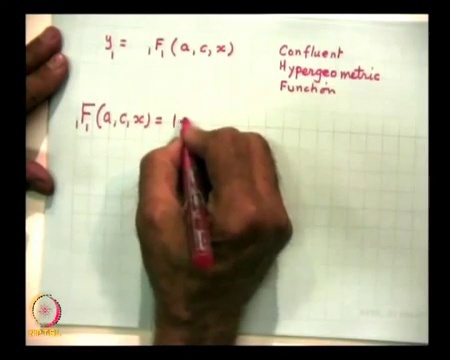 y₁ = ₁F₁ (a, c, x)
Confluent
Hypergeometric
Function
₁F₁ (a, c, x) = 1+